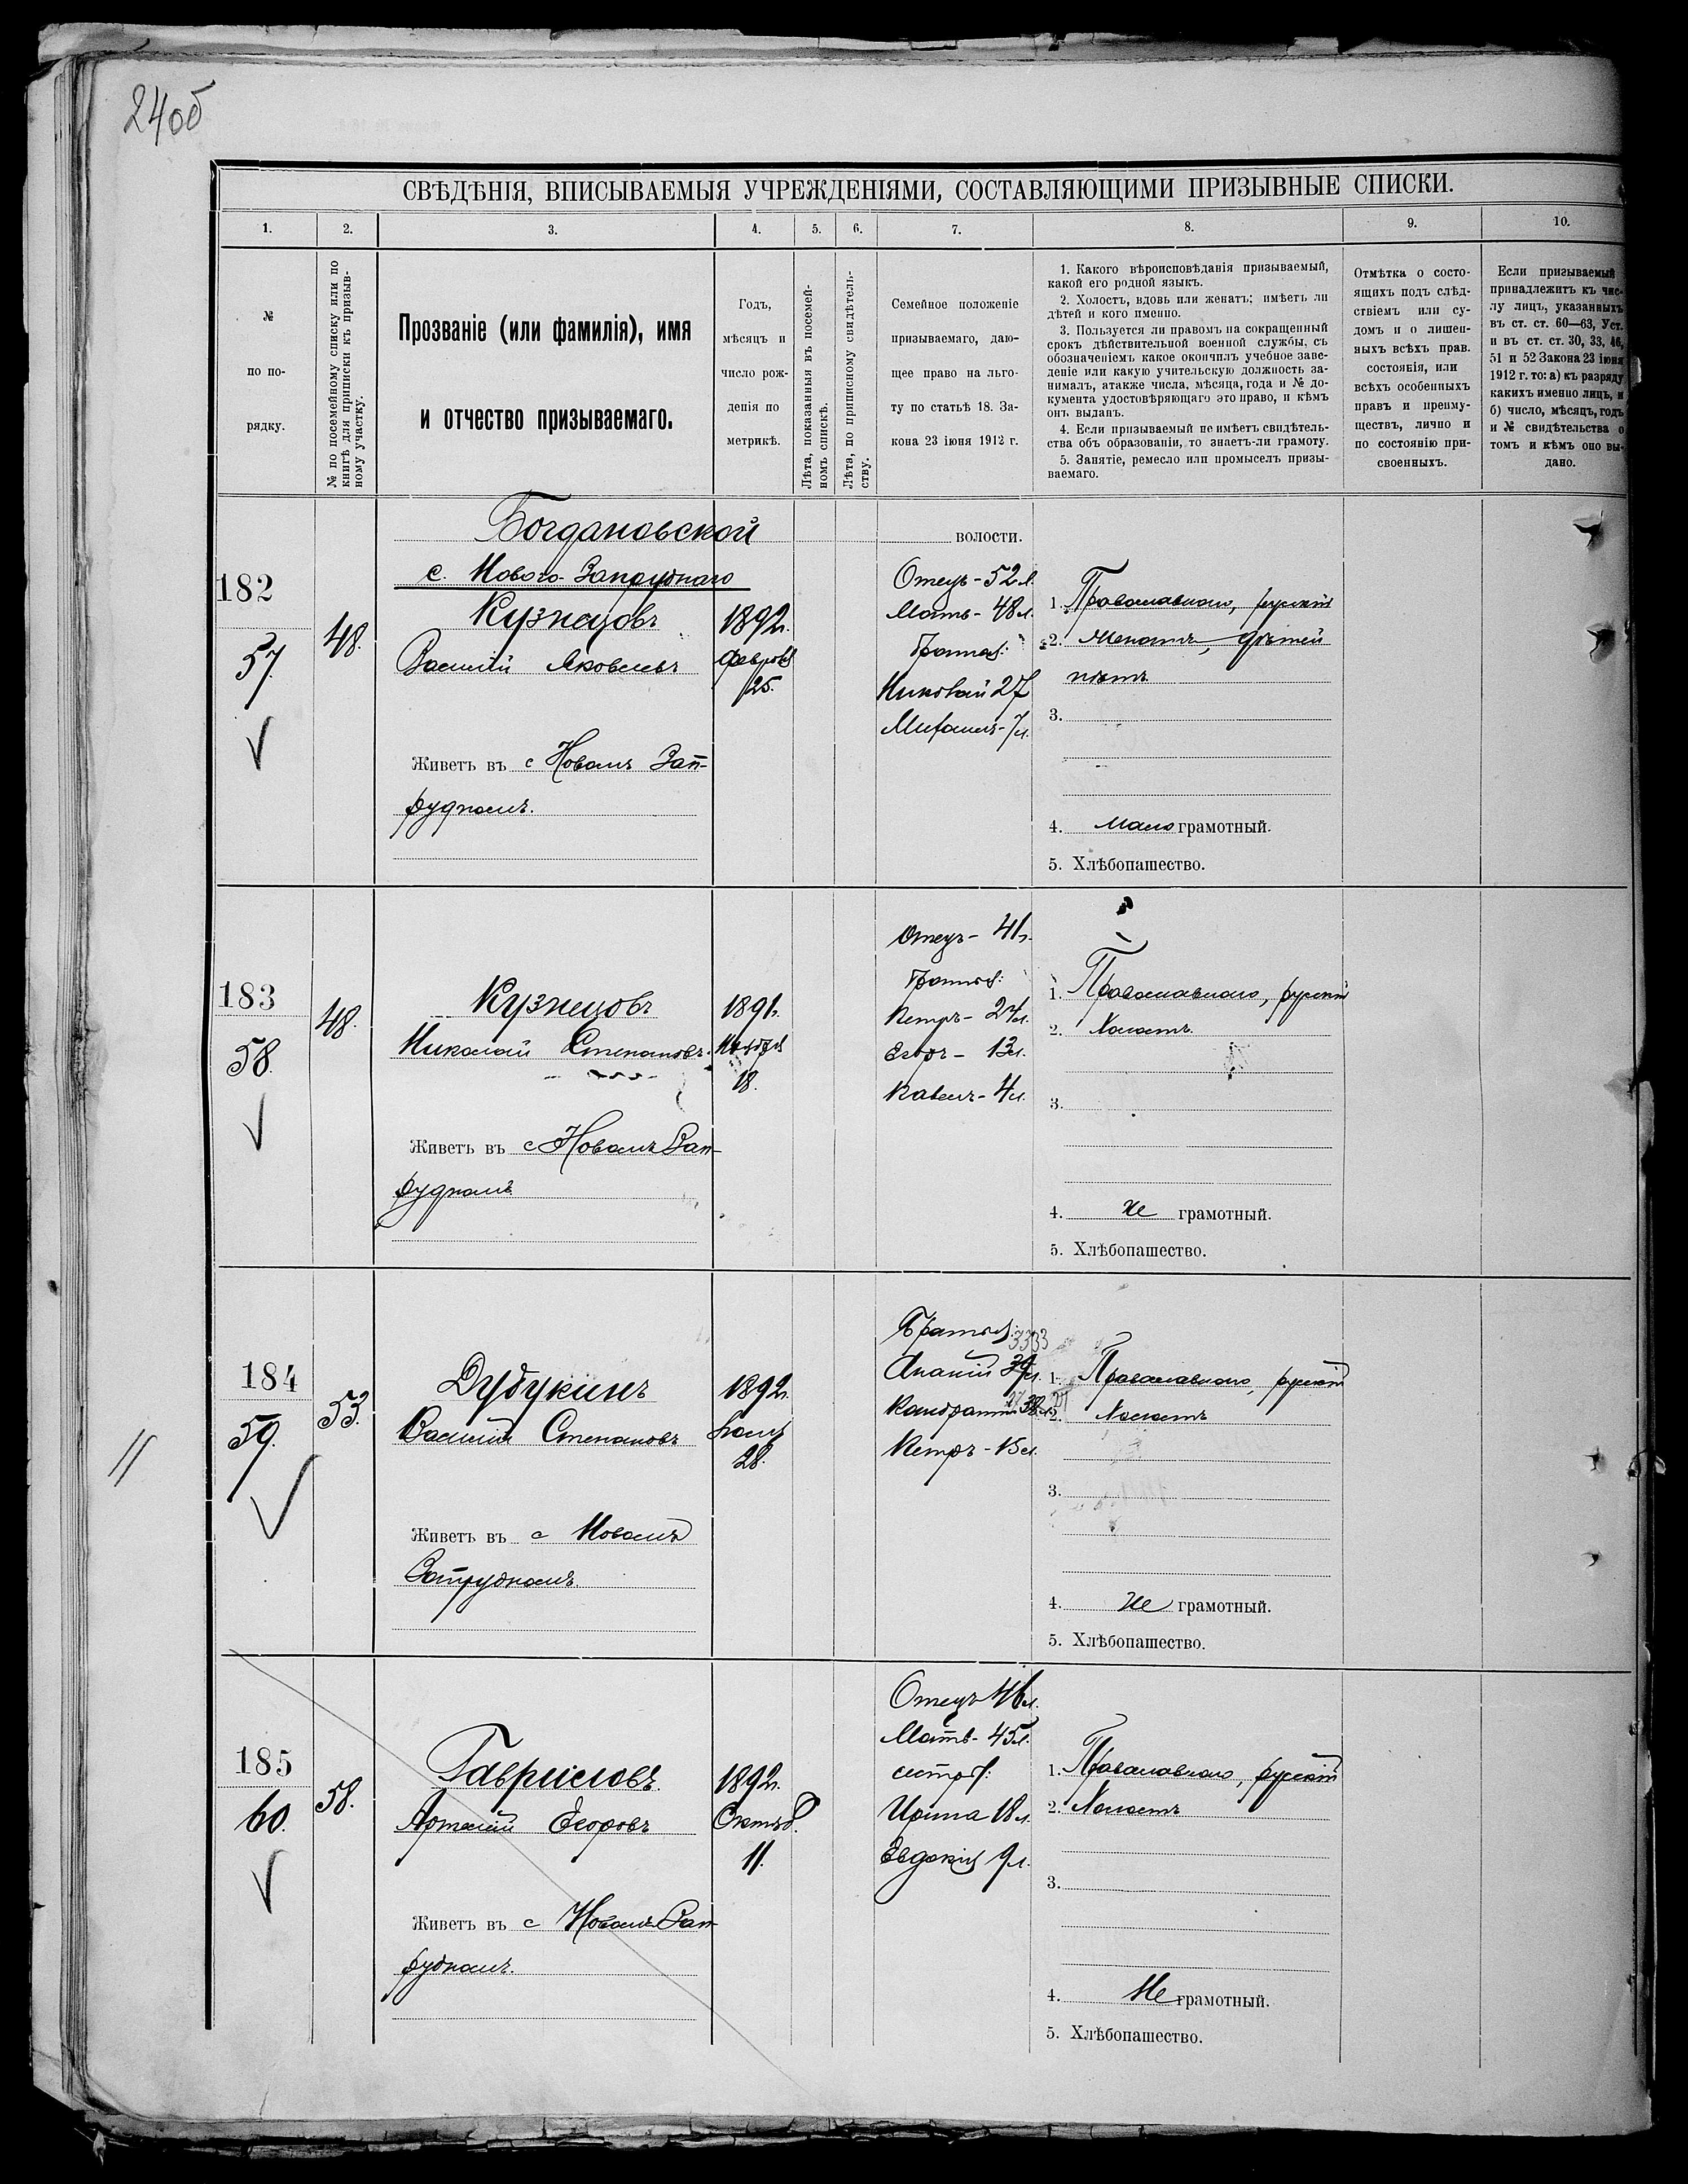 24об
СВѢДѢНІЯ, ВПИСЫВАЕМЫЯ УЧРЕЖДЕНІЯМИ, СОСТАВЛЯЮЩИМИ ПРИЗЫВНЫЕ СПИСКИ.
1. 2. 3. 4. 5. 6. 7. 8. 9. 10.
№
по по-
рядку.
№ по посемейному списку или по
книгѣ для приписки къ призыв-
ному участку.
Прозваніе (или фамилія), имя
и отчество призываемаго.
Годъ,
мѣсяцъ и
число рож-
денія по
метрикѣ.
Лѣта, показанныя въ посемей-
номъ спискѣ.
Лѣта, по приписному свидѣтель-
ству.
Семейное положеніе
призываемаго, даю-
щее право на льго-
ту по статьѣ 18. За-
кона 23 іюня 1912 г.
1. Какого вѣроисповѣданія призываемый,
какой его родной языкъ.
2. Холостъ, вдовъ или женатъ; имѣетъ ли
дѣтей и кого именно.
3. Пользуется ли правомъ на сокращенный
срокъ дѣйствительной военной службы, съ
обозначеніемъ какое окончилъ учебное заве-
деніе или какую учительскую должность за-
нималъ, атакже числа, мѣсяца, года и № до-
кумента удостовѣряющаго это право, и кѣмъ
онъ выданъ.
4. Если призываемый не имѣетъ свидѣтель-
ства объ образованіи, то знаетъ-ли грамоту.
5. Занятіе, ремесло или промыселъ призы-
ваемаго.
Отмѣтка о состо-
ящихъ подъ слѣд-
ствіемъ или су-
домъ и о лишен-
ныхъ всѣхъ прав.
состоянія, или
всѣхъ особенныхъ
правъ и преиму-
ществъ, лично и
по состоянію при-
своенныхъ.
Если призываемый
принадлежитъ къ чис-
лу лицъ, указанныхъ
въ ст. ст. 60—63, Уст.
и въ ст. ст. 30, 33, 46,
51 и 52 Закона 23 іюня
1912 г. то: а) къ разряду
какихъ именно лицъ, и
б) число, мѣсяцъ, годъ
и № свидѣтельства о
томъ и кѣмъ оно вы-
дано.
Богдановской волости.
с. Нового Запруднаго
182
57
48.
Кузнецовъ
Василій Яковлевъ
1892г.
Февраля
25.
Отецъ - 52 л.
Мать - 48 л.
Братья:
Николай 27
Михаилъ - 7 л.
1. Православнаго, русскій
2. Женатъ, дѣтей
нѣтъ
3.
Живетъ въ с Новомъ Зап-
рудномъ.
4. мало грамотный.
5. Хлѣбопашество.
183
58
48.
Кузнецовъ
Николай Степановъ.
1891г.
Ноября
18.
Отецъ - 41 г.
Братья:
Петръ - 24 л.
Егоръ - 13 л.
Павелъ - 4 л.
1. Православнаго, русскій
2. Холостъ.
3.
Живетъ въ с Новомъ Зап-
рудномъ
4. Не грамотный.
5. Хлѣбопашество.
184
59.
53.
Дудукинъ
Василій Степановъ
1892г.
28.
Братья:
Ананій
Кондратій
Петръ - 15 л.
1. Православнаго, русскій
2. Холостъ
3.
Живетъ въ с Новомъ
Запрудномъ.
4. Не грамотный.
5. Хлѣбопашество.
185
60.
58.
Гавриловъ.
Артемій Егоровъ
1892г.
Октяб.
11.
Отецъ 46 л.
Мать - 45 л.
сестры:
Ирина 18 л.
Евдокія 9 л.
1. Православнаго, русскій
2. Холостъ
3.
Живетъ въ с Новомъ Зап-
рудномъ.
4. Не грамотный.
5. Хлѣбопашество.